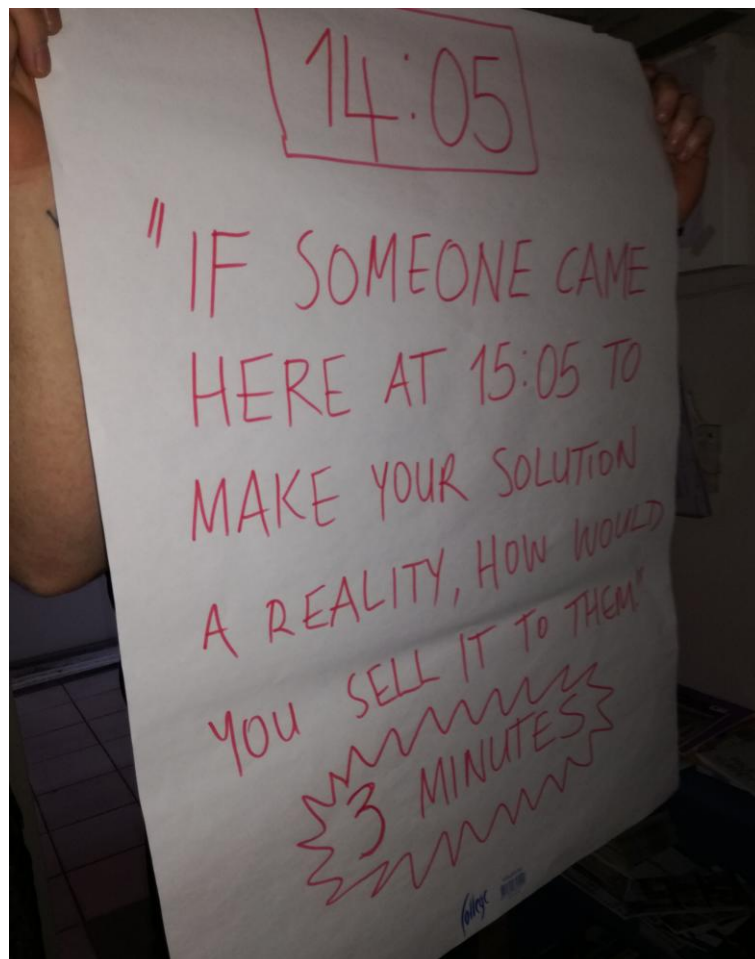 14:05
"IF SOMEONE CAME
HERE AT 15:05 TO
MAKE YOUR SOLUTION
A REALITY, HOW WOULD
YOU SELL IT TO THEM."
3 MINUTES
College